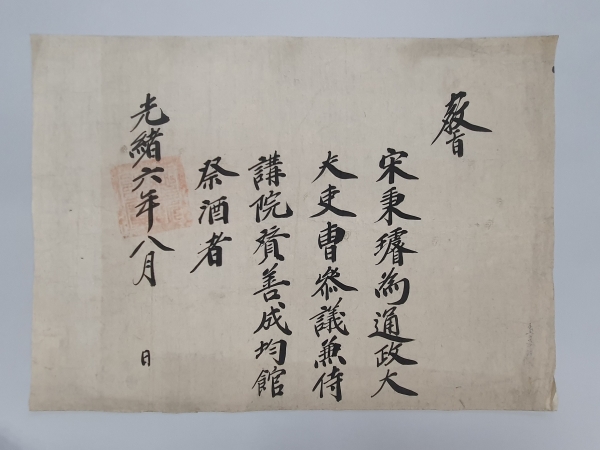 敎旨
宋秉璿爲通政大
夫吏曹參議兼侍
講院贊善成均館
祭酒者
光緖六年八月 日